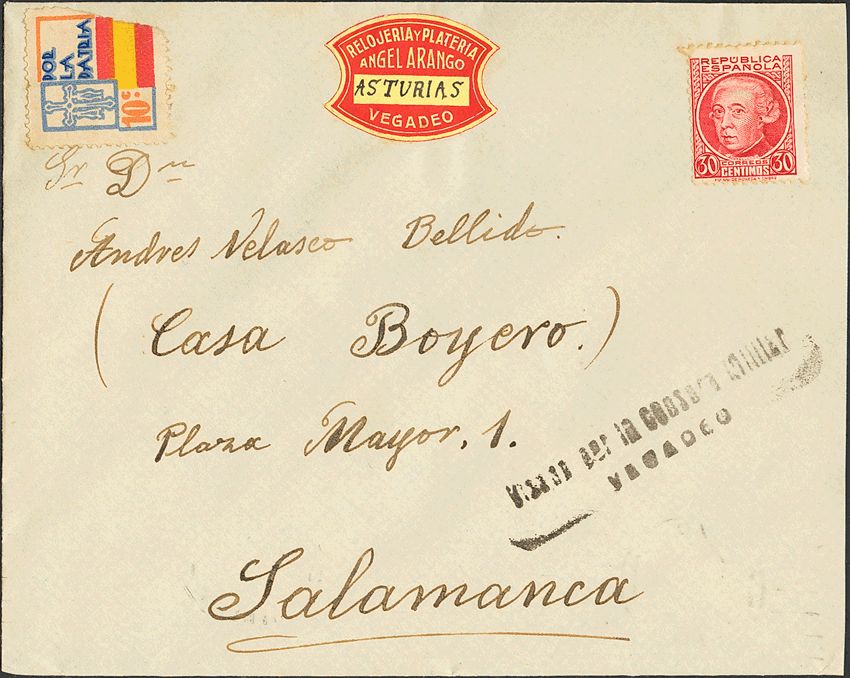 POR
LA
PATRIA
10 c.
RELOJERIA Y PLATERIA
ANGEL ARANGO
ASTURIAS
VEGADEO
REPUBLICA
ESPAÑOLA
30 CORREOS 30
CENTIMOS
Sr Dn
Andres Velasco Bellido.
(Casa Boyero.)
Plaza Mayor, 1.
Visado por la Censura Militar
VEGADEO
Salamanca